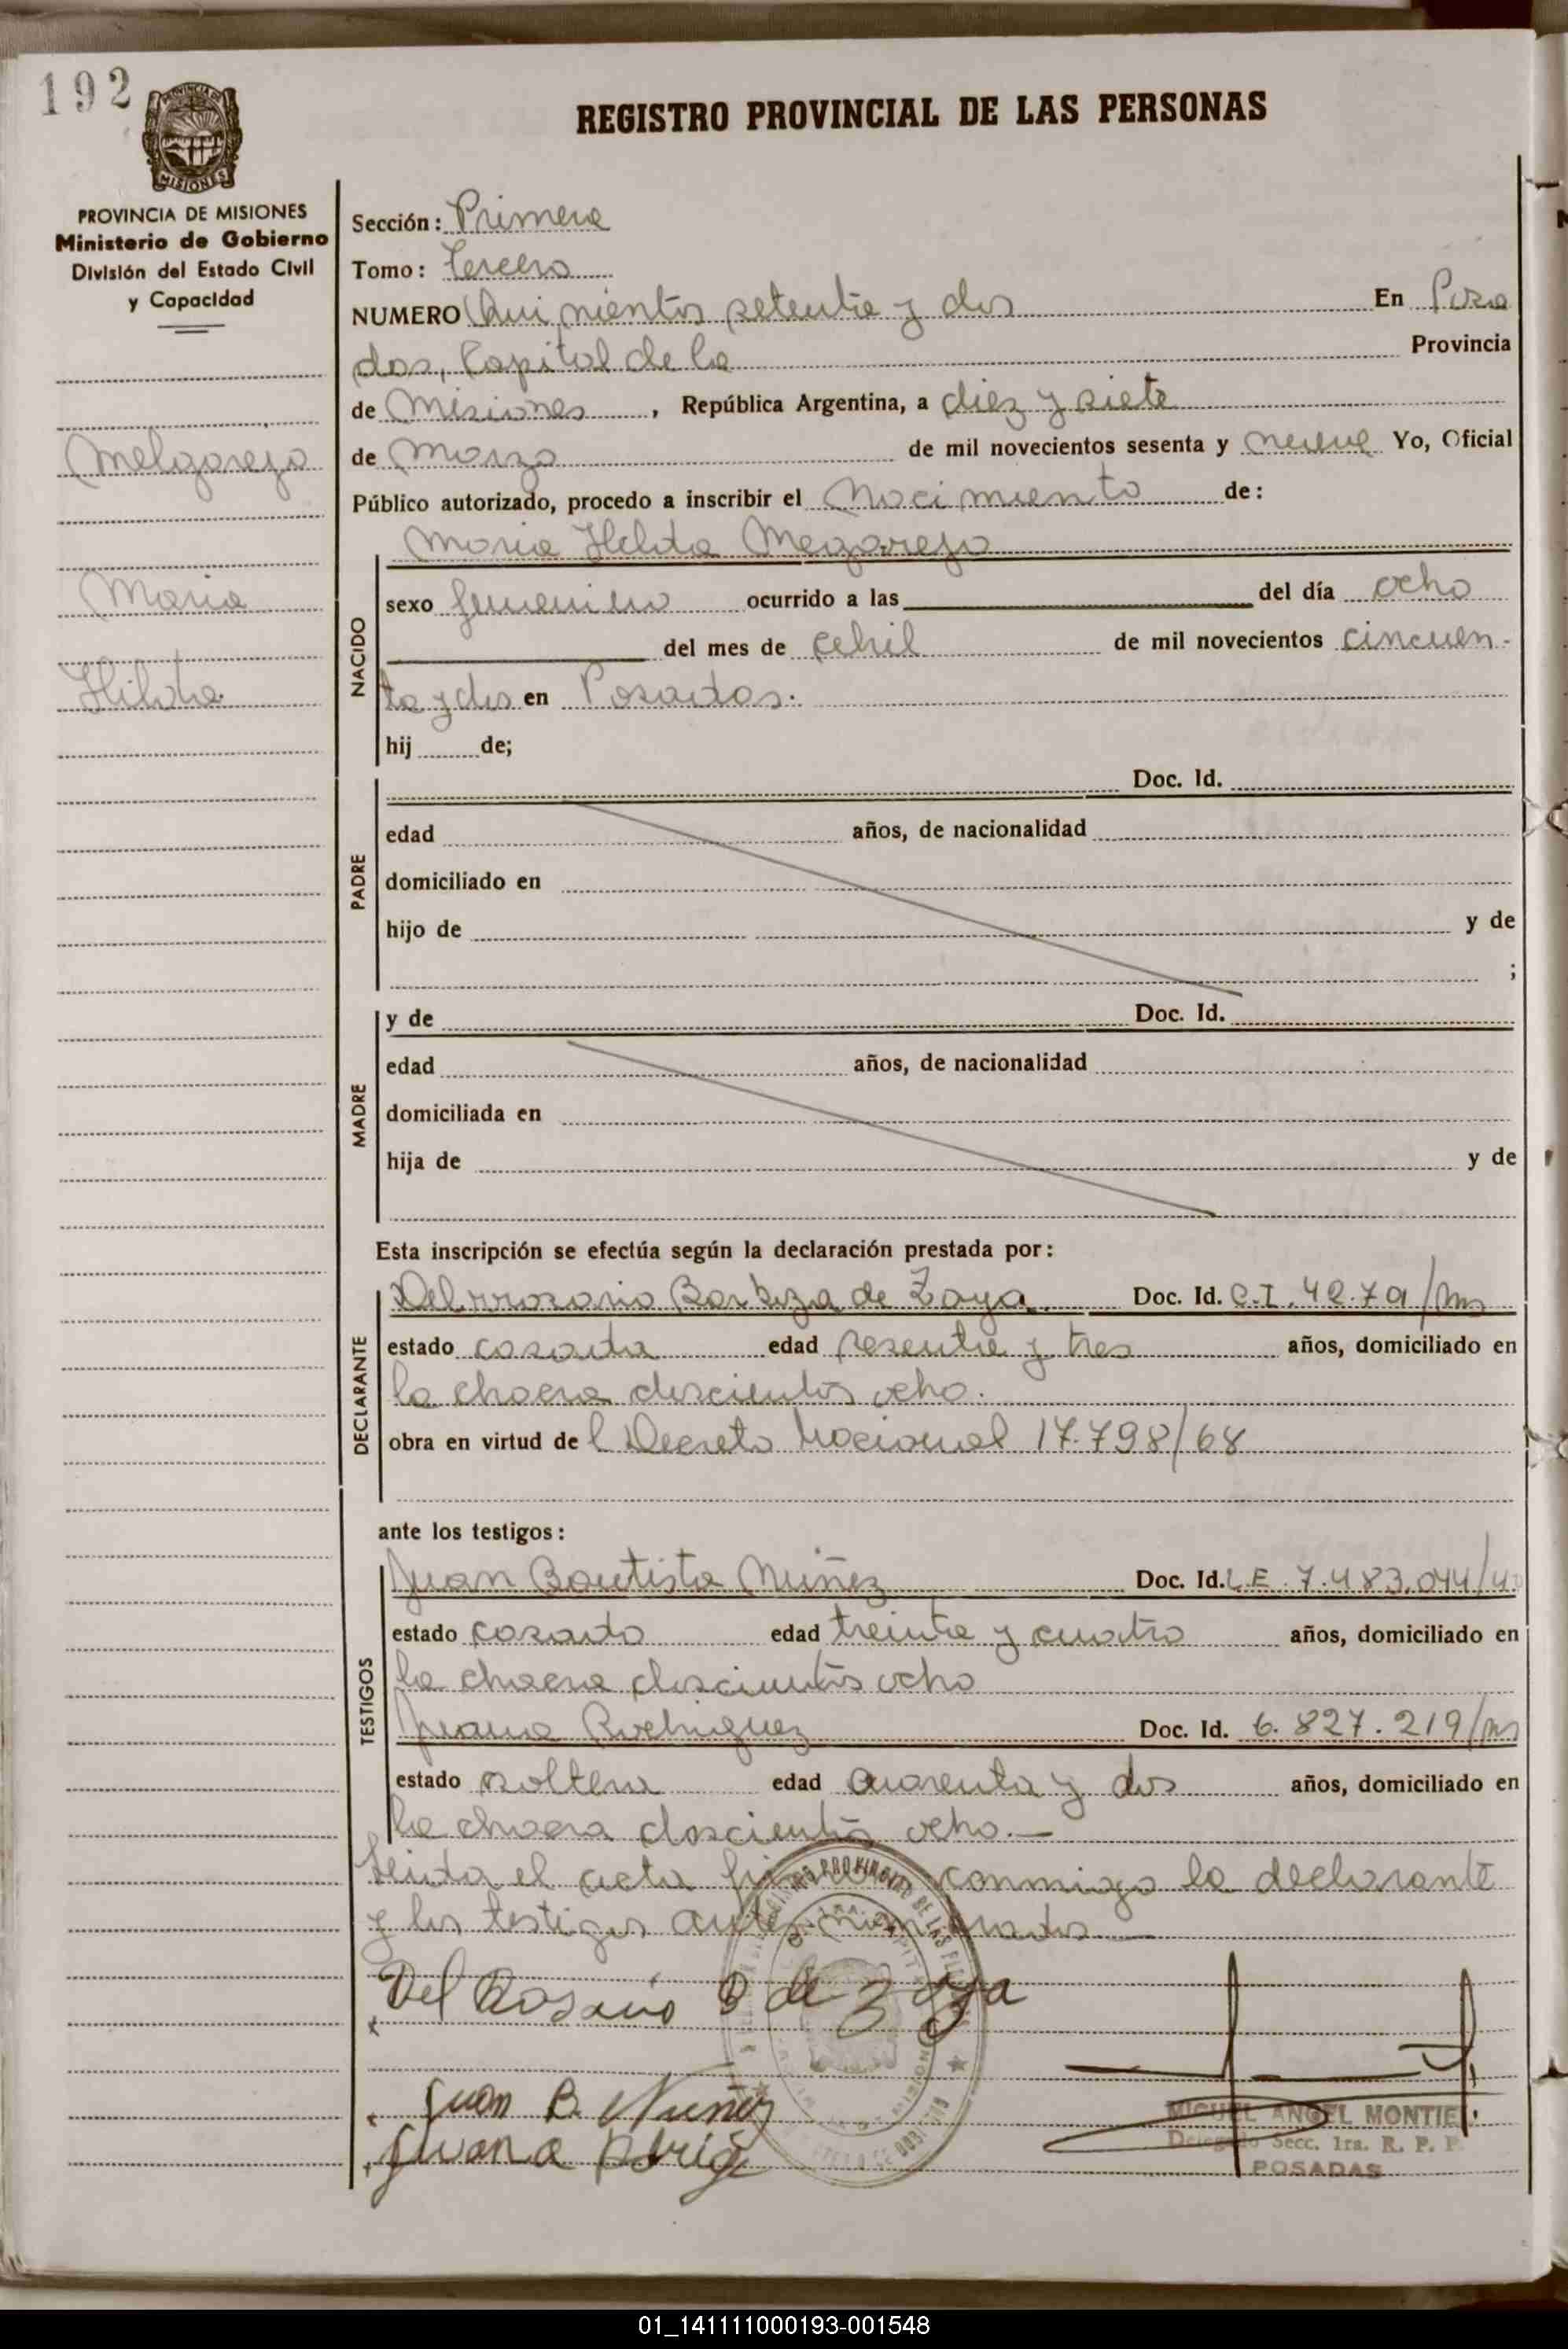 192
PROVINCIA DE MISIONES
PROVINCIA DE MISIONES
Ministerio de Gobierno
División del Estado Civil
y Capacidad
Melgarejo
Maria
Hilda
REGISTRO PROVINCIAL DE LAS PERSONAS
Sección: Primera
Tomo: Tercero
NUMERO Quinientos setenta y dos En Posa
das, Capital de la Provincia
de Misiones, República Argentina, a diez y siete
de Marzo de mil novecientos sesenta y nueve Yo, Oficial
Público autorizado, procedo a inscribir el Nacimiento de:
Maria Hilda Megarejo
NACIDO
sexo femenino ocurrido a las del día ocho
del mes de abril de mil novecientos cincuen-
ta y dos en Posadas.
hij de;
PADRE
Doc. Id.
edad años, de nacionalidad
domiciliado en
hijo de y de
;
MADRE
y de Doc. Id.
edad años, de nacionalidad
domiciliada en
hija de y de
Esta inscripción se efectúa según la declaración prestada por:
DECLARANTE
Del rrosario de Zaya Doc. Id. C.I. /Ms
estado casada edad sesenta y tres años, domiciliado en
la chacra doscientos ocho.
obra en virtud de l Decreto Nacional 17.798/68
ante los testigos:
TESTIGOS
Juan Bautista Nuñez Doc. Id. L.E. 7.483.044/
estado casado edad treinta y cuatro años, domiciliado en
la chacra doscientos ocho
Juana Rodriguez Doc. Id. 6.827.219/Ms
estado soltera edad cuarenta y dos años, domiciliado en
la chacra doscientos ocho.—
Leida el acta conmigo la declarante
y los testigos antes
Del Rosario B de Zaya
Juan B. Nuñez
Juana
MIGUEL ANGEL MONTIEL
Delegado Secc. 1ra. R. P. P.
POSADAS
01_141111000193-001548